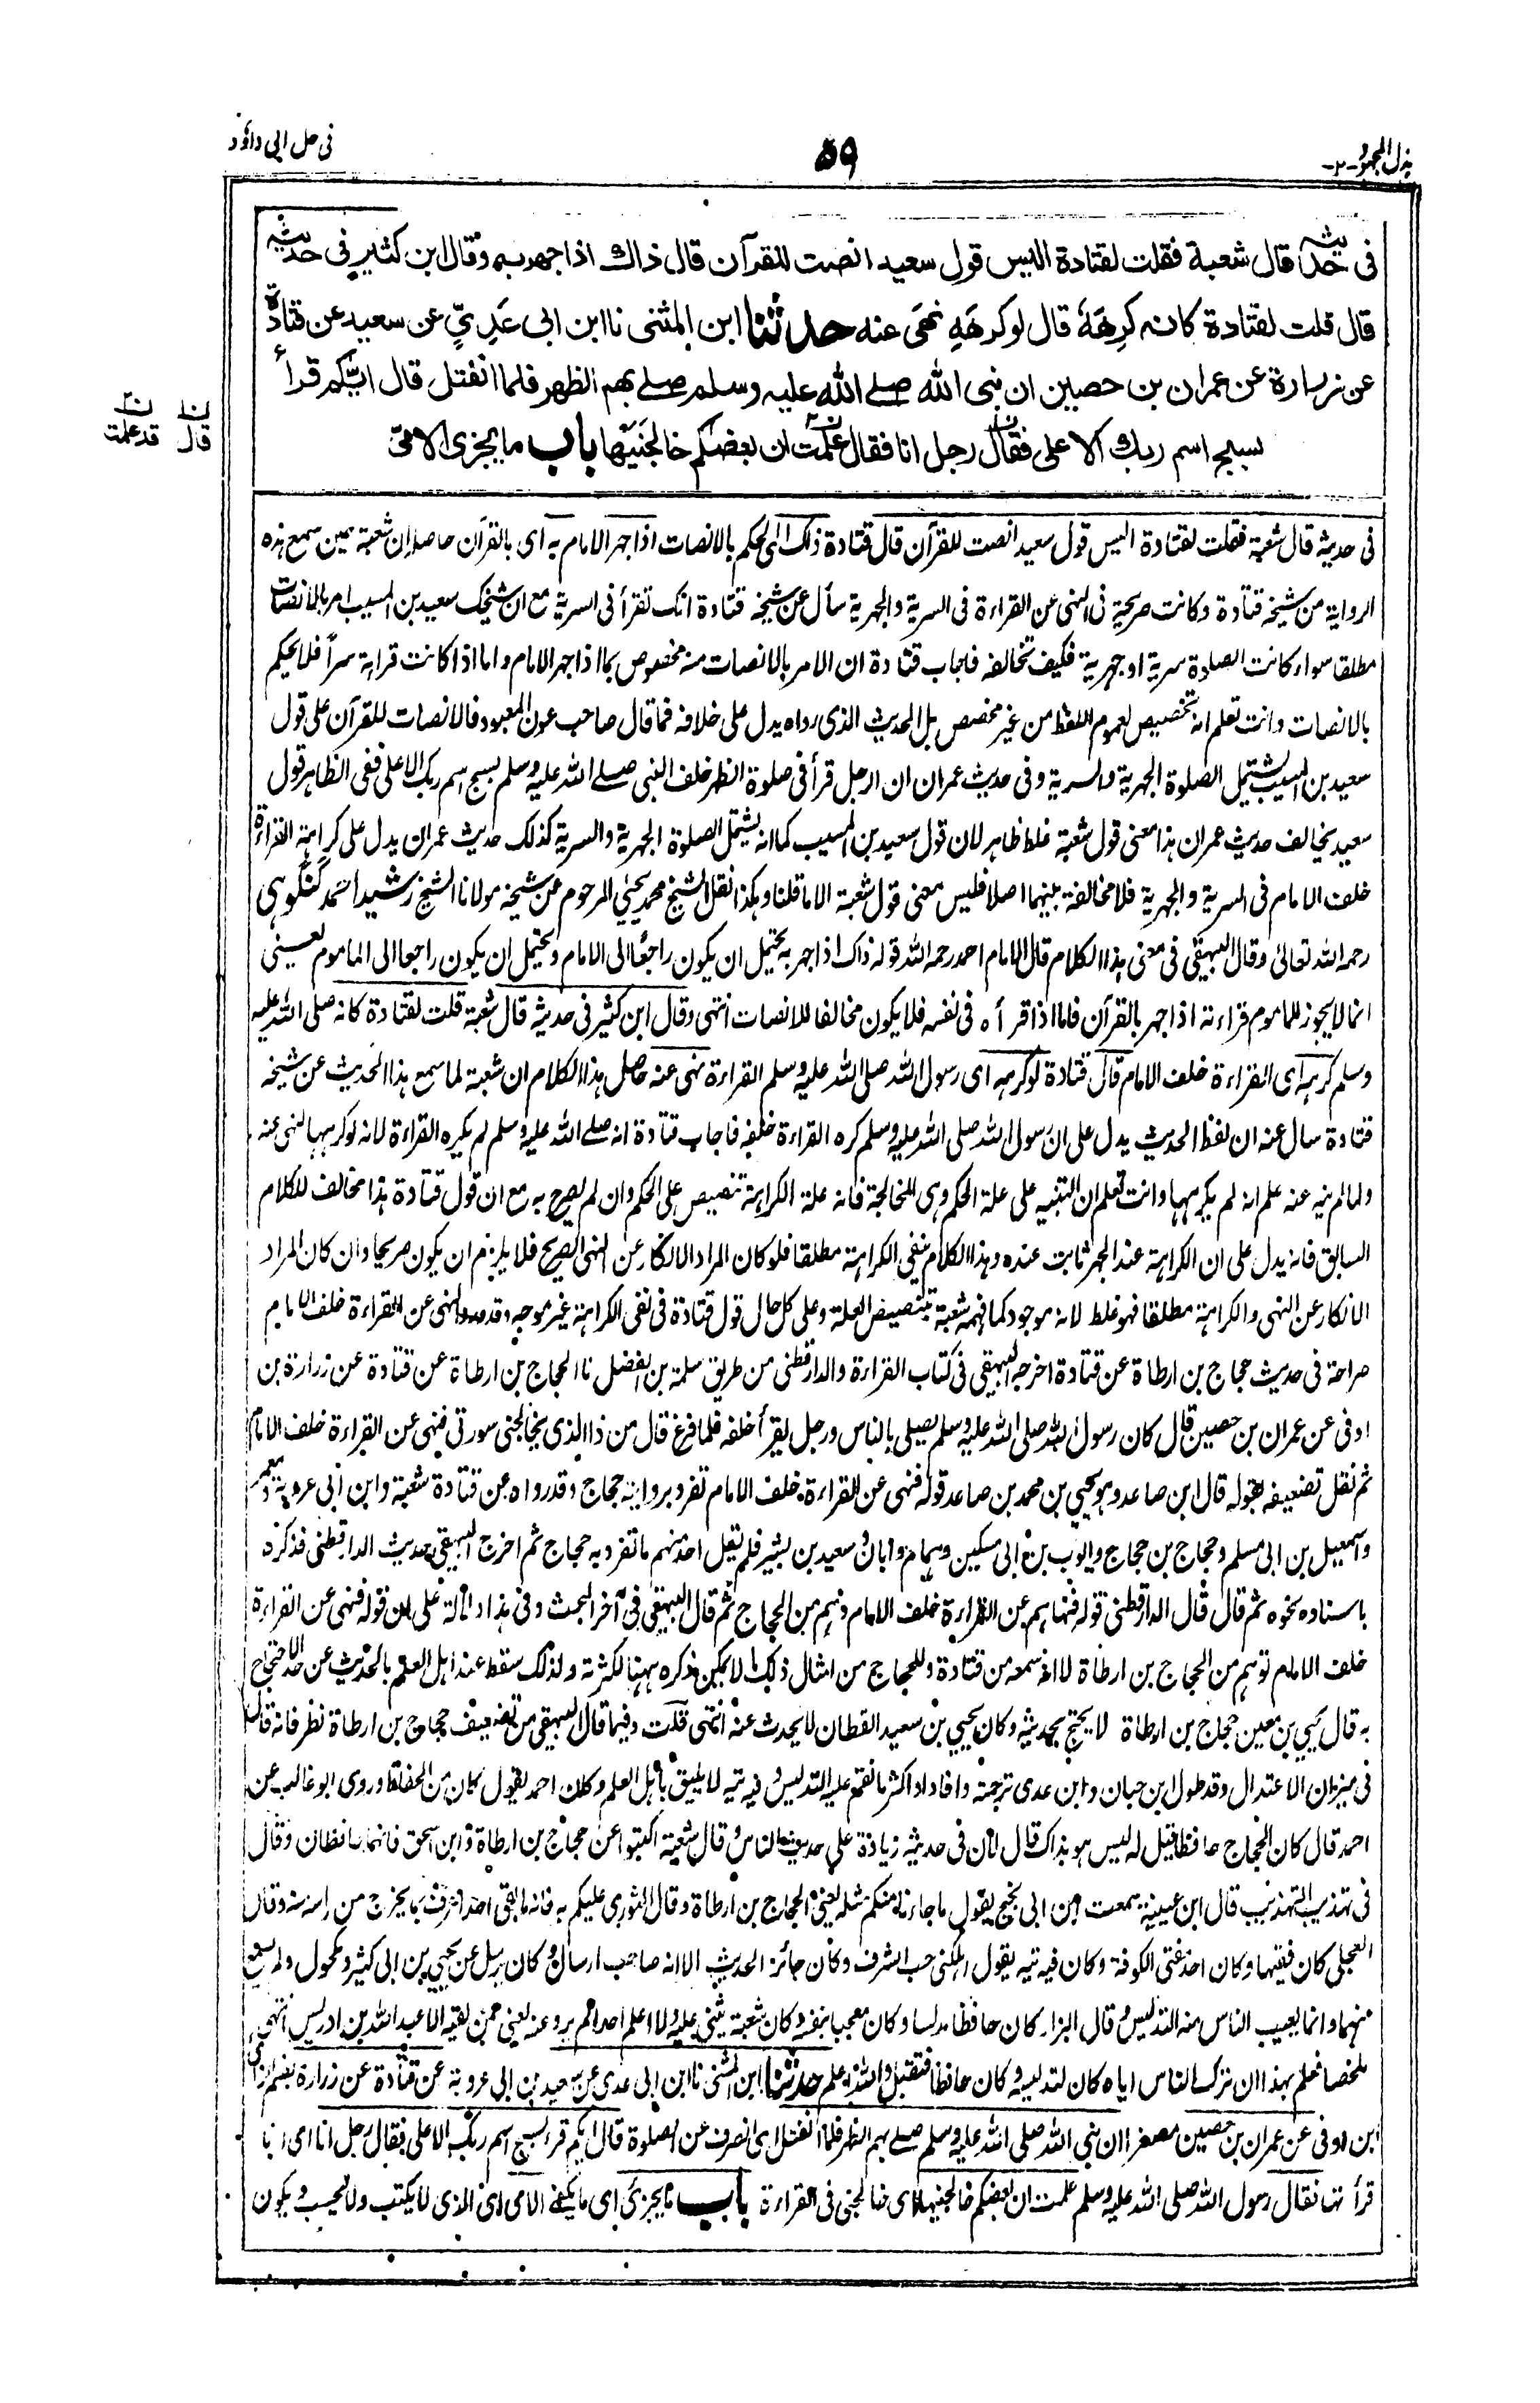 بذل المجهود -٢-
٥٩
في حل ابي داؤد
في حديثه قال شعبة فقلت لقتادة اليس قول سعيد انصت للقرآن قال ذاك اذا جهر به وقال ابن كثير في حديثه
قال قلت لقتادة كانه كرهه قال لو كرهه نهى عنه حدثنا ابن المثنى نا ابن ابي عدي عن سعيد عن قتادة
عن زرارة عن عمران بن حصين ان نبي الله صلے الله عليه وسلم صلے بهم الظهر فلما انفتل قال ايكم قرأ
بسبح اسم ربك الاعلى فقال رجل انا فقال علمت ان بعضكم خالجنيها باب ما يجزئ الامي
ن١ قال
ن٢ قد علمت
في حديثه قال شعبة فقلت لقتادة اليس قول سعيد انصت للقرآن قال قتادة ذلك اي الحكم بالانصات اذا جهر الامام به اي بالقرآن حاصله ان شعبة حين سمع هذه
الرواية من شيخه قتادة وكانت صريحة في النهي عن القراءة في السرية والجهرية سأل عن شيخه قتادة انك تقرأ في السرية مع ان شيخك سعيد بن المسيب امر بالانصات
مطلقا سواء كانت الصلوة سرية او جهرية فكيف تخالفه فاجاب قتادة ان الامر بالانصات منه مخصوص بما اذا جهر الامام واما اذا كانت قراءة سرا فلا يحكم
بالانصات وانت تعلم انه تخصيص لعموم اللفظ من غير مخصص بل الحديث الذي رواه يدل على خلافه فما قال صاحب عون المعبود فالانصات للقرآن على قول
سعيد بن المسيب يشتمل الصلوة الجهرية والسرية وفي حديث عمران ان الرجل قرأ في صلوة الظهر خلف النبي صلے الله عليه وسلم بسبح اسم ربك الاعلى ففي الظاهر قول
سعيد يخالف حديث عمران هذا معنى قول شعبة غلط ظاهر لان قول سعيد بن المسيب كما انه يشتمل الصلوة الجهرية والسرية كذلك حديث عمران يدل على كراهة القراءة
خلف الامام في السرية والجهرية فلا مخالفة بينهما اصلا فليس معنى قول شعبة الا ما قلنا وهكذا نقل الشيخ محمد يحيى المرحوم عن شيخه مولانا الشيخ رشيد احمد گنگوهي
رحمه الله تعالى وقال البيهقي في معنى هذا الكلام قال الامام احمد رحمه الله قوله ذاك اذا جهر به يحتمل ان يكون راجعا الى الامام ويحتمل ان يكون راجعا الى الماموم يعني
انما لا يجوز للماموم قراءته اذا جهر بالقرآن فاما اذا قرأه في نفسه فلا يكون مخالفا للانصات انتهى وقال ابن كثير في حديثه قال شعبة قلت لقتادة كانه صلى الله عليه
وسلم كرهه اي القراءة خلف الامام قال قتادة لو كرهه اي رسول الله صلى الله عليه وسلم القراءة نهى عنه حاصل هذا الكلام ان شعبة لما سمع هذا الحديث عن شيخه
قتادة سال عنه ان لفظ الحديث يدل على ان رسول الله صلى الله عليه وسلم كره القراءة خلفه فاجاب قتادة انه صلے الله عليه وسلم لم يكره القراءة لانه لو كرهها لنهى عنه
ولما لم ينه عنه علم انه لم يكرهها وانت تعلم ان التنبيه على علة الحكم وهي المخالجة فانه علة الكراهة تنصيص على الحكم وان لم يصرح به مع ان قول قتادة هذا مخالف للكلام
السابق فانه يدل على ان الكراهة عند الجهر ثابت عنده وهذا الكلام ينفي الكراهة مطلقا فلو كان المراد الانكار عن النهي الصريح فلا يلزم ان يكون صريحا وان كان المراد
الانكار عن النهي والكراهة مطلقا فهو غلط لانه موجود كما فهمه شعبة بتنصيص العلة وعلى كل حال قول قتادة في نفي الكراهة غير موجه وقد ورد النهي عن القراءة خلف الامام
صراحة في حديث حجاج بن ارطاة عن قتادة اخرجه البيهقي في كتاب القراءة والدارقطني من طريق سلمة بن الفضل نا الحجاج بن ارطاة عن قتادة عن زرارة بن
اوفى عن عمران بن حصين قال كان رسول الله صلى الله عليه وسلم يصلي بالناس ورجل يقرأ خلفه فلما فرغ قال من ذا الذي يخالجني سورتي فنهى عن القراءة خلف الامام
ثم نقل تضعيفه بقوله قال ابن صاعد وهو يحيى بن محمد بن صاعد قوله فنهى عن القراءة خلف الامام تفرد بروايته حجاج وقد رواه عن قتادة شعبة وابن ابي عروبة ومعمر
واسمعيل بن ابي مسلم وحجاج بن حجاج وايوب بن ابي مسكين وهمام وابان وسعيد بن بشير فلم يقل احد منهم ما تفرد به حجاج ثم اخرج البيهقي حديث الدارقطني فذكره
باسناده نحوه ثم قال قال الدارقطني قوله فنهاهم عن القراءة خلف الامام وهم من الحجاج ثم قال البيهقي في آخر البحث وفي هذا دلالة على ان قوله فنهى عن القراءة
خلف الامام توهم من الحجاج بن ارطاة لا انه سمعه من قتادة وللحجاج من امثال ذلك ما لا يمكن ذكره ههنا لكثرته ولذلك سقط عند اهل العلم بالحديث عن حد الاحتجاج
به قال يحيى بن معين حجاج بن ارطاة لا يحتج بحديثه وكان يحيى بن سعيد القطان لا يحدث عنه انتهى قلت وفيما قال البيهقي من تضعيف حجاج بن ارطاة نظر فانه قال
في ميزان الاعتدال وقد طول ابن حبان وابن عدي ترجمته وافادا واكثر ما نقم عليه التدليس وفيه تيه لا يليق باهل العلم وكان احمد يقول كان من الحفاظ وروى ابو غالب عن
احمد قال كان الحجاج حافظا قيل له ليس هو بذاك قال لان في حديثه زيادة على حديث الناس وقال شعبة اكتبوا عن حجاج بن ارطاة وابن اسحق فانهما حافظان وقال
في تهذيب التهذيب قال ابن عيينة سمعت ابن ابي نجيح يقول ما جاءنا منكم مثله يعني الحجاج بن ارطاة وقال الثوري عليكم به فانه ما بقي احد اعرف بما يخرج من راسه منه وقال
العجلي كان فقيها وكان احد مفتي الكوفة وكان فيه تيه يقول اهلكني حب الشرف وكان جائز الحديث الا انه صاحب ارسال وكان يرسل عن يحيى بن ابي كثير ومكحول ولم يسمع
منهما وانما يعيب الناس منه التدليس وقال البزار كان حافظا مدلسا وكان معجبا بنفسه وكان شعبة يثني عليه ولا اعلم احدا لم يرو عنه يعني ممن لقيه الا عبد الله بن ادريس انتهى
ملخصا فعلم بهذا ان ترك الناس اياه كان لتدليسه وكان حافظا فتقبل والله اعلم حدثنا ابن المثنى نا ابن ابي عدي عن سعيد بن ابي عروبة عن قتادة عن زرارة بضم زاي
ابن اوفى عن عمران بن حصين مصغرا ان نبي الله صلى الله عليه وسلم صلے بهم الظهر فلما انفتل اي انصرف عن الصلوة قال ايكم قرأ بسبح اسم ربك الاعلى فقال رجل انا اي انا
قرأتها فقال رسول الله صلى الله عليه وسلم علمت ان بعضكم خالجنيها اي خالجني في القراءة باب ما يجزئ اي ما يكفي الامي اي الذي لا يكتب ولا يحسب ويكون